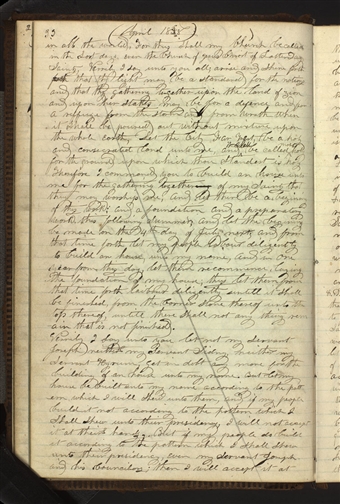 33 (April 1838
in all the world, For thus shall my Church be called
in the last days even the Church of Jesus Christ of Latter Day
Saints, Verily I say unto you all; arise and shine forth
that thy light may be a standard for the nations
and that the gathering together upon the land of Zion
and upon her stakes may be for a defence and for
a reffuge from the storm and from wrath when
it shall be poured out without mixture upon
the whole Earth, Let the City Far West be a holy
and consecrated land unto me, and be called
for the ground upon which thou standest is holy
Therefore I command you to build an house unto
me for the gathering together of my Saints that
they may worship me, and let there be a begining
of this work; and a foundation and a preparatory
work, this following Summer; and let the begining
be made on the 4th day of July next; and from
that time forth let my people labour diligently
to build an house, unto my name, and in one
year from this day, let them recommence laying
the foundation of my house; thus let them from
that time forth labour untill it shall
be finished, from the Corner Stone thereof unto the
top thereof, untill there shall not any thing rem
ain that is not finished.
Verily I say unto you let not my servant
Joseph neither my Servant Sidney neither my
Servant Hyrum, get in debt any more for the
building of an house unto my name. But let my
house be built unto my name according to the patt
ern which I will shew unto them, and if my people
build it not according to the pattern which I
shall shew unto their presidency, I will not accept
it at their hands. But if my people do build
it according to the pattern which I shall shew
unto their presidency, even my servant Joseph
and his Councilors; then I will accept it at